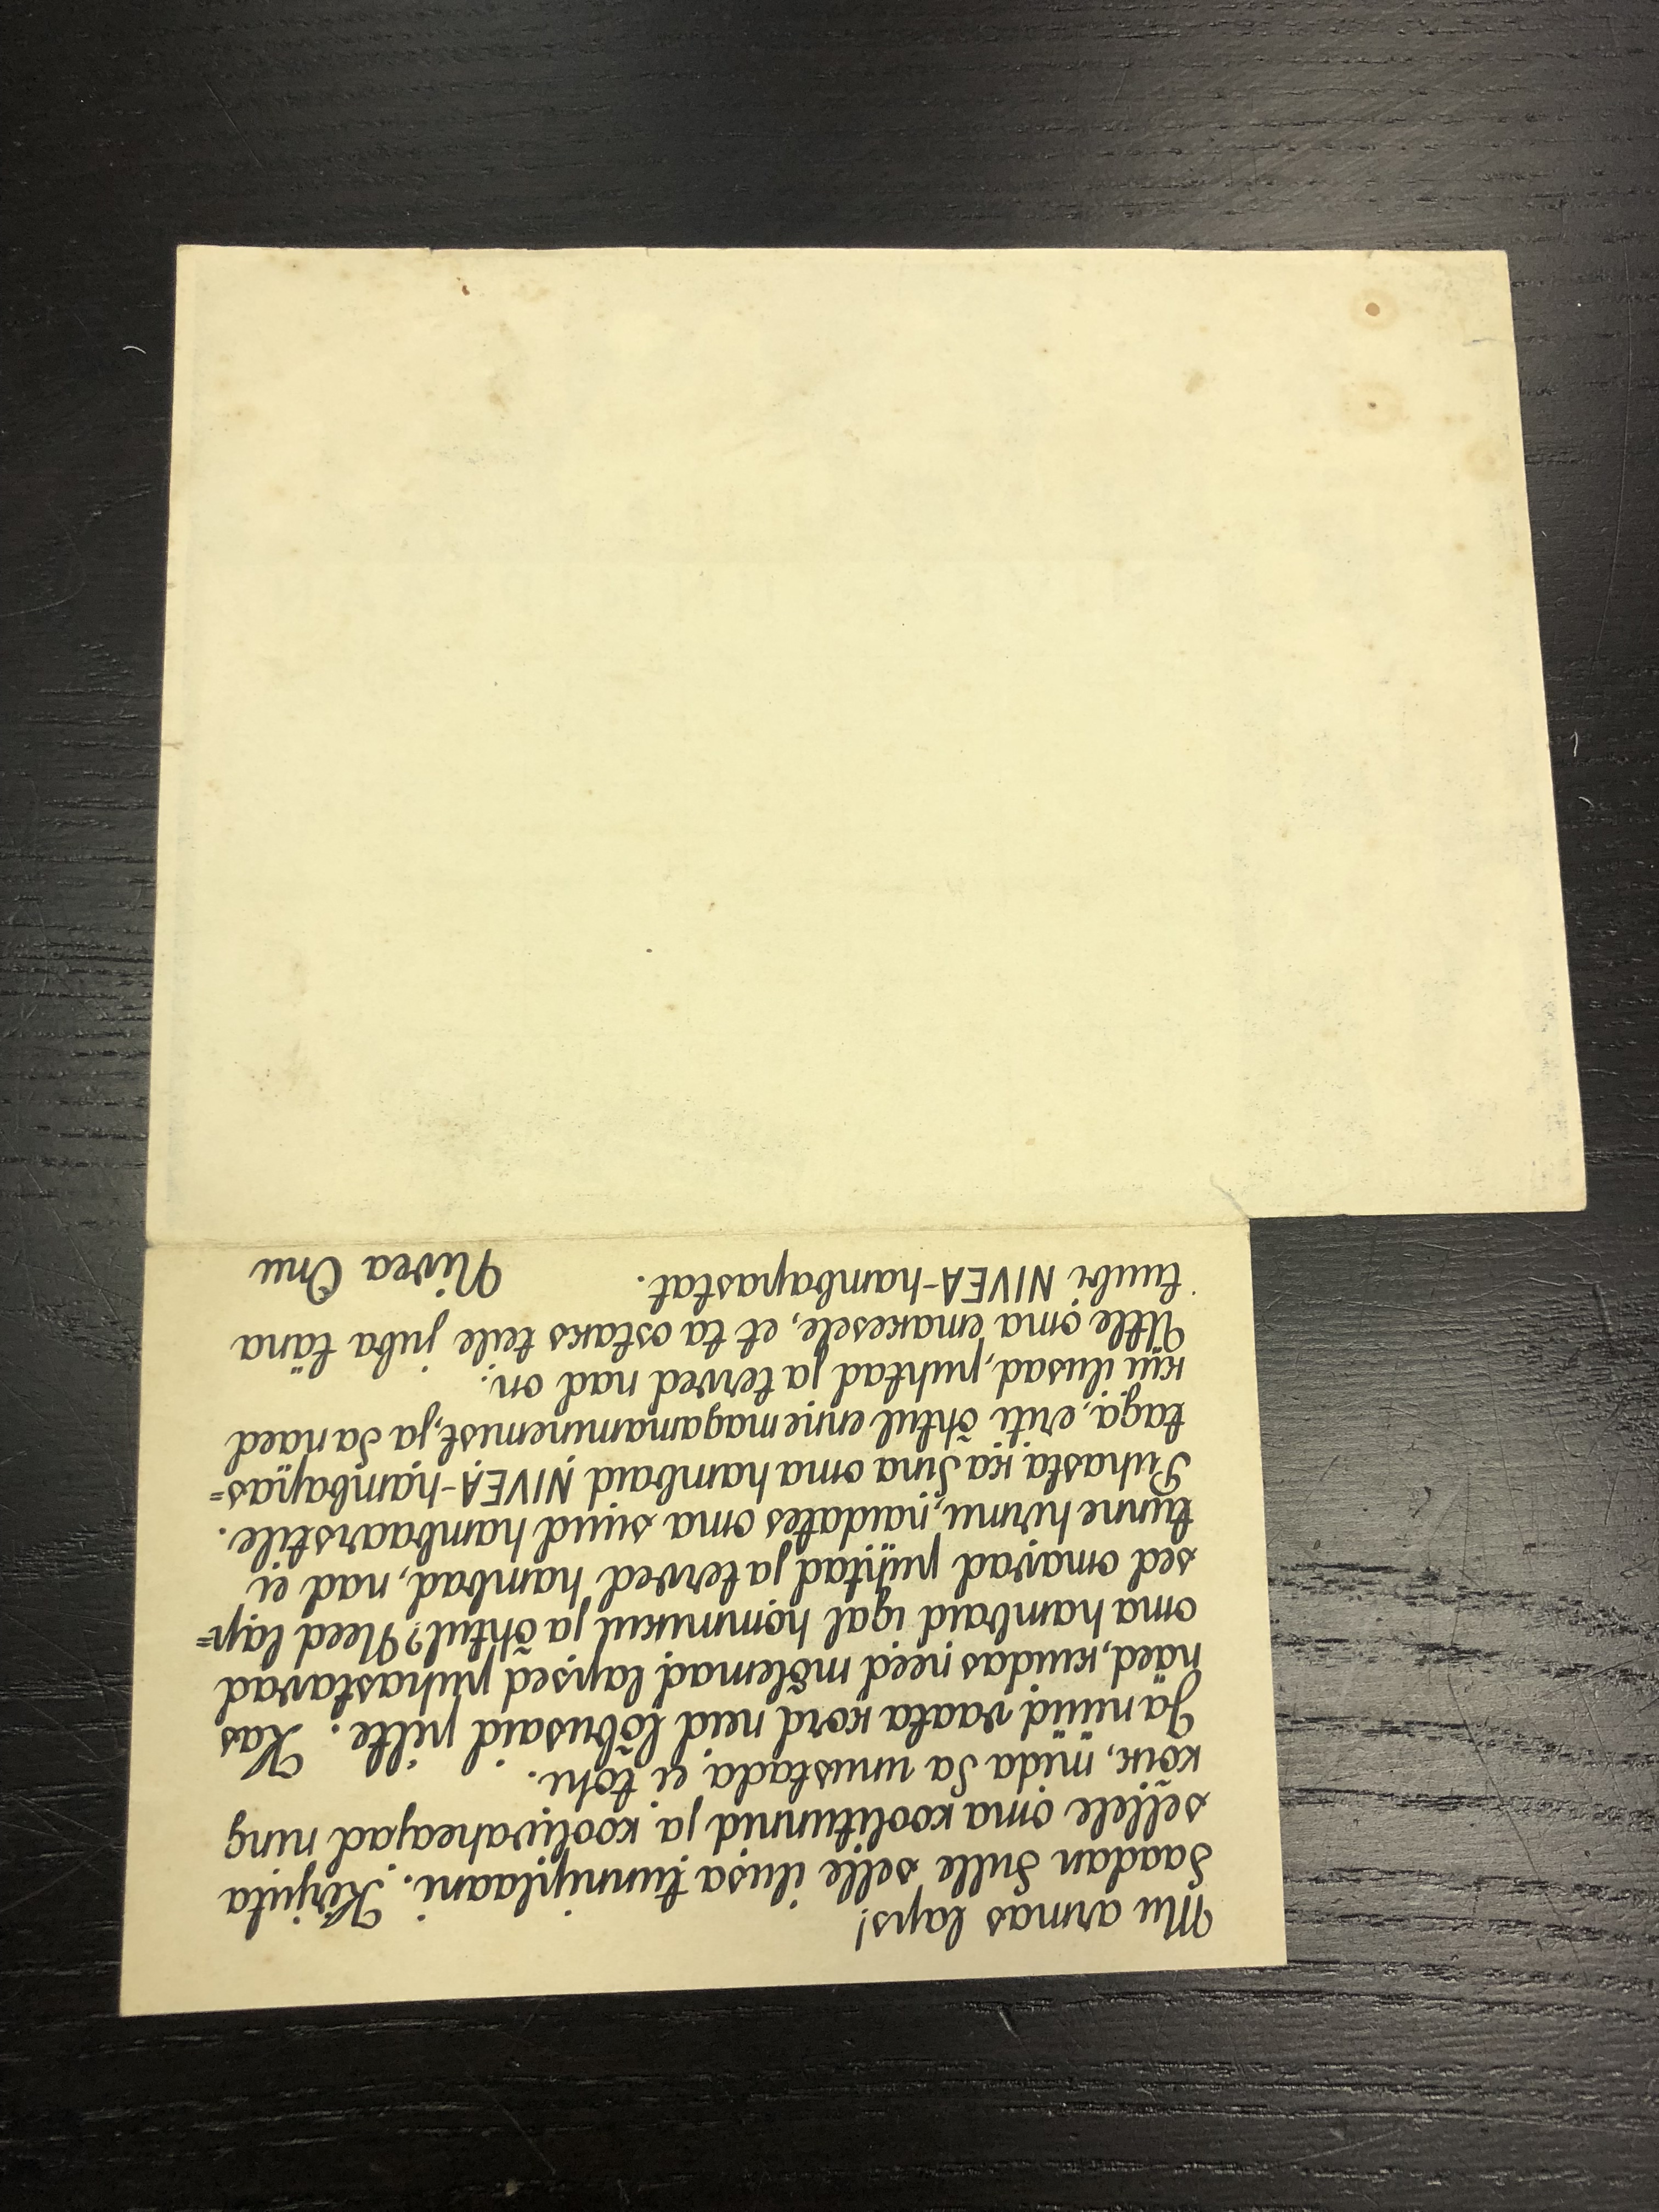 Mu armas laps!
Saadan Sulle selle ilusa tunniplaani. Kirjuta
sellele oma koolitunnid ja koolivaheajad ning
kõik, mida Sa unustada ei tohi.
Ja nüüd vaata kord neid lõbusaid pilte. Kas
näed, kuidas need mõlemad lapsed puhastavad
oma hambaid igal hommikul ja õhtul? Need lap=
sed omavad puhtad ja terved hambad, nad ei
tunne hirmu, näidates oma suud hambaarstile.
Puhasta ka Sina oma hambaid NIVEA-hambapas=
taga, eriti õhtul enne magamaminemist, ja Sa näed
kui ilusad, puhtad ja terved nad on.
Ütle oma emakesele, et ta ostaks teile juba täna
tuubi NIVEA-hambapastat. Nivea Onu